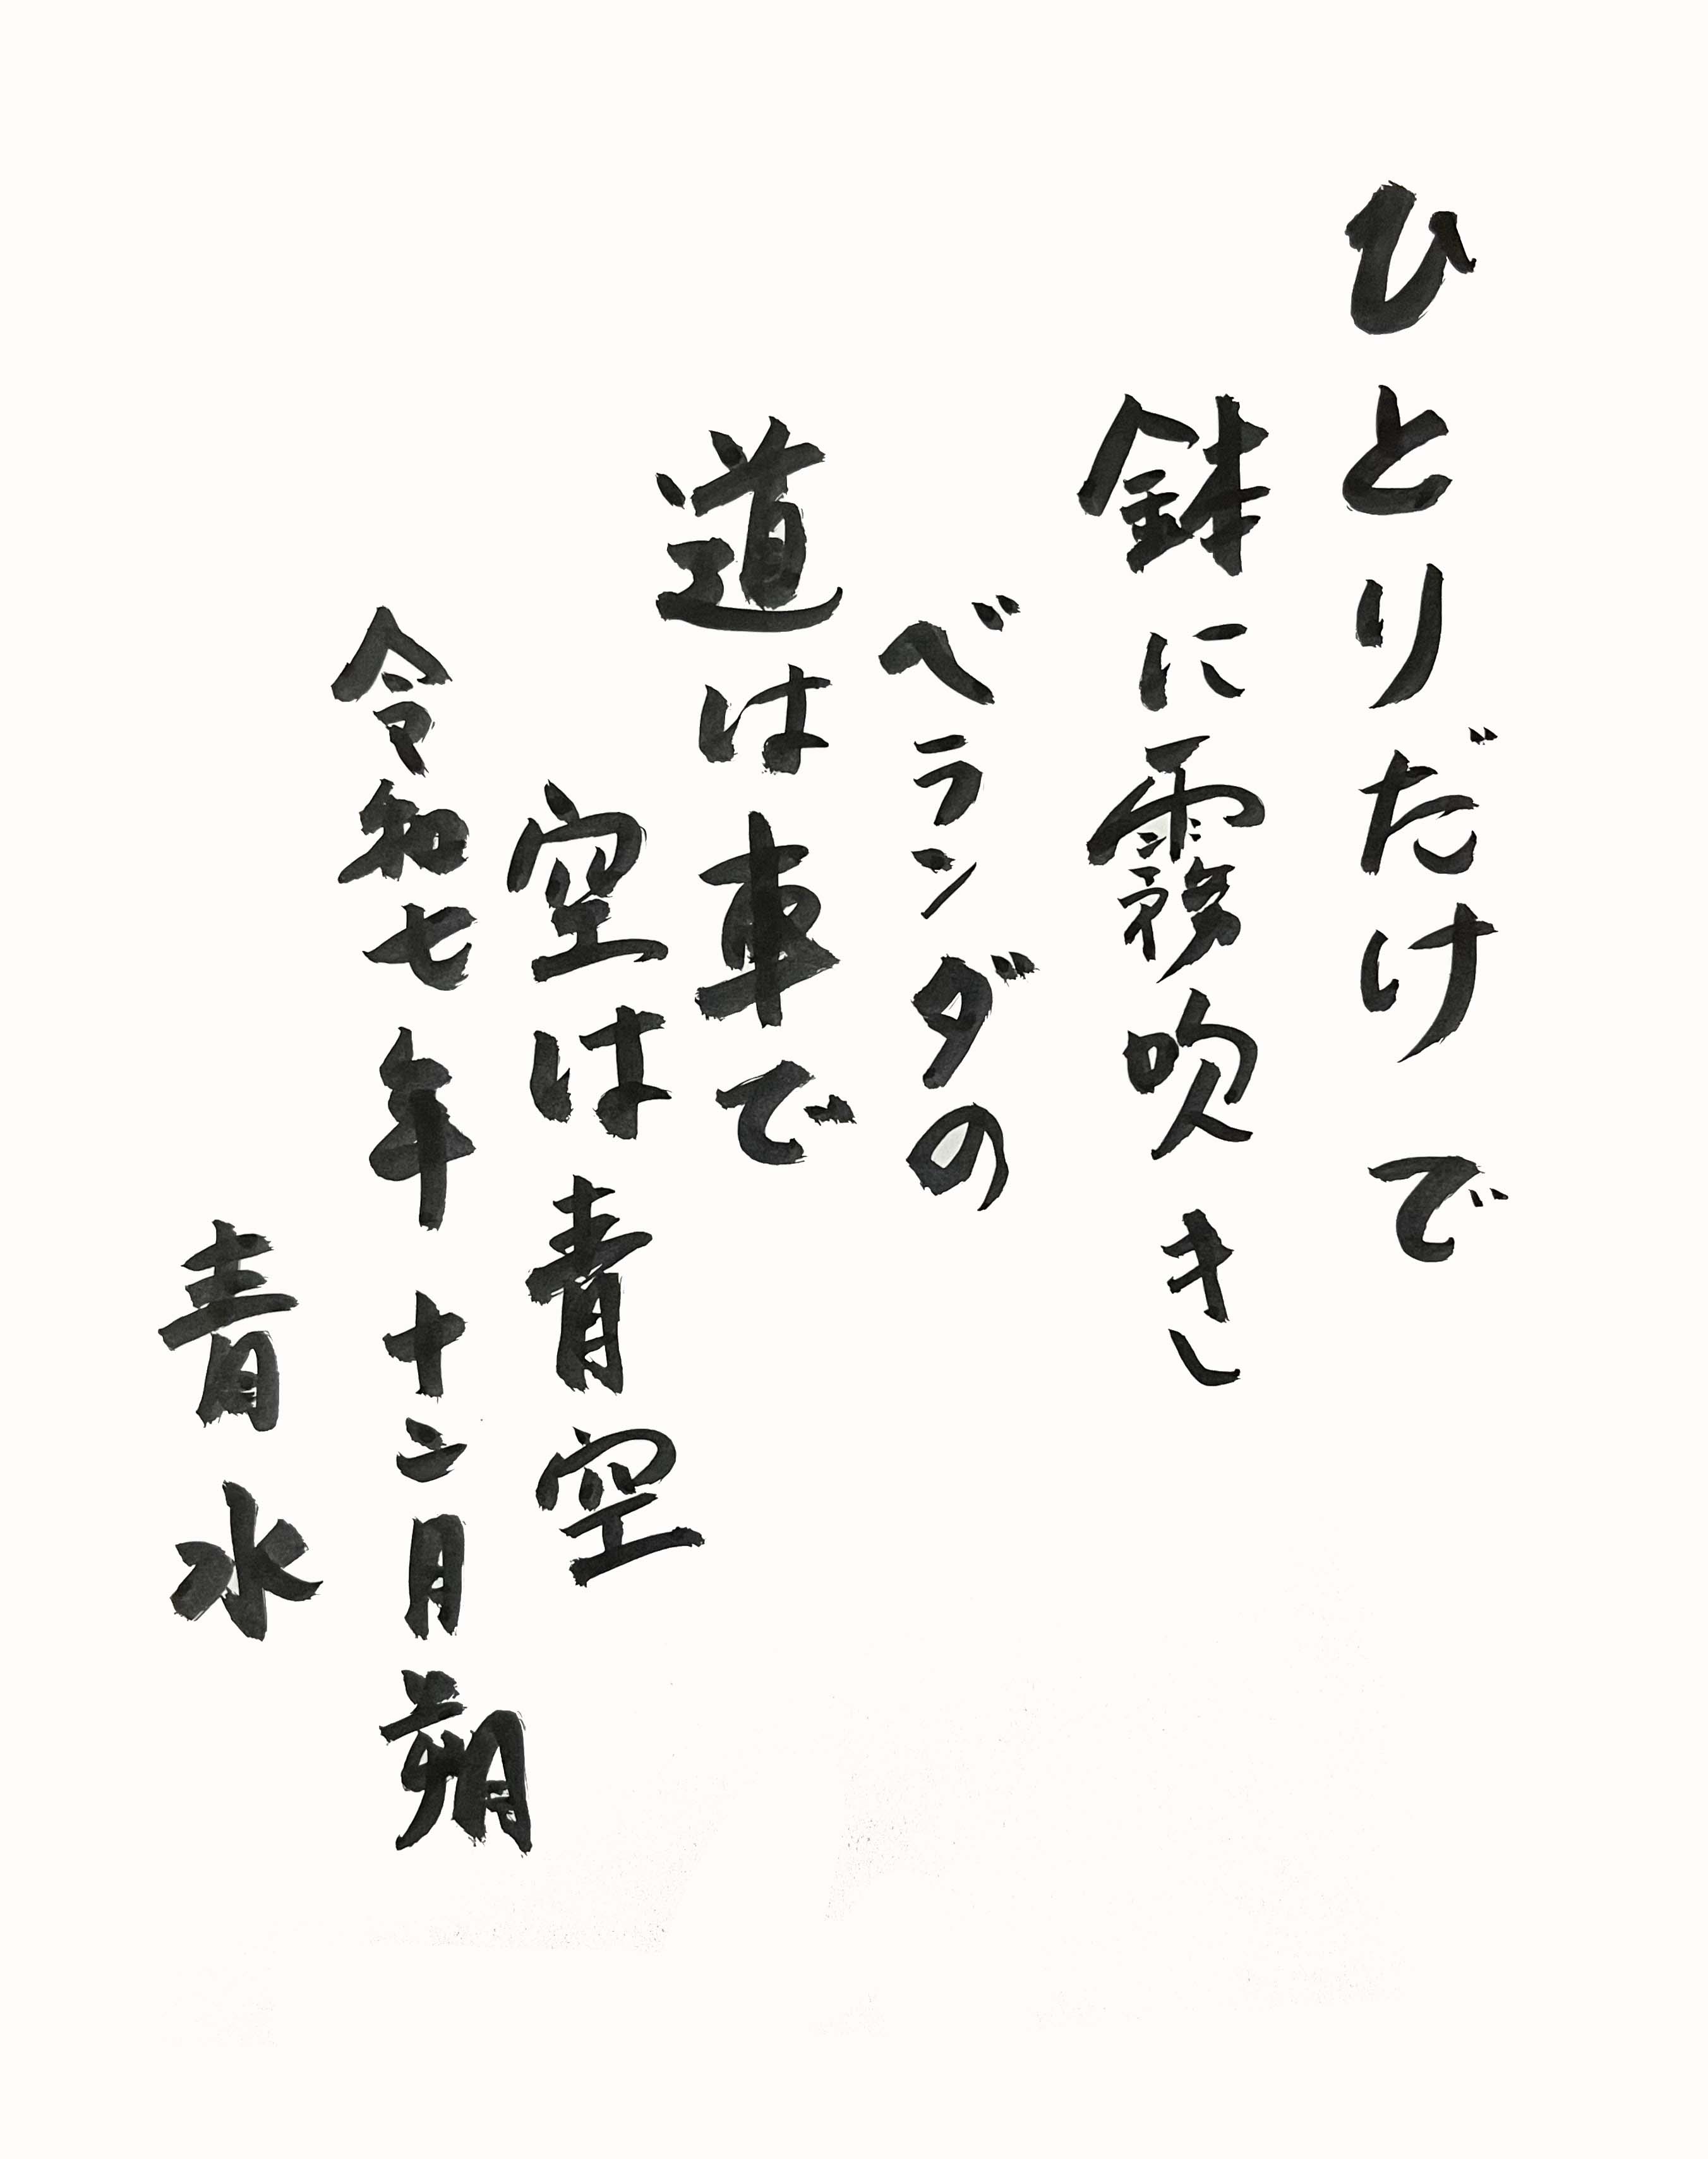 ひとりだけで
鉢に霧吹きし
ベランダの
道は車で
空は青空
令和七年十二月朔
青水